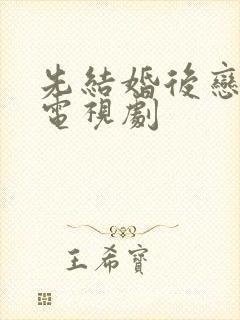 先結婚後戀
電視劇
王希寶